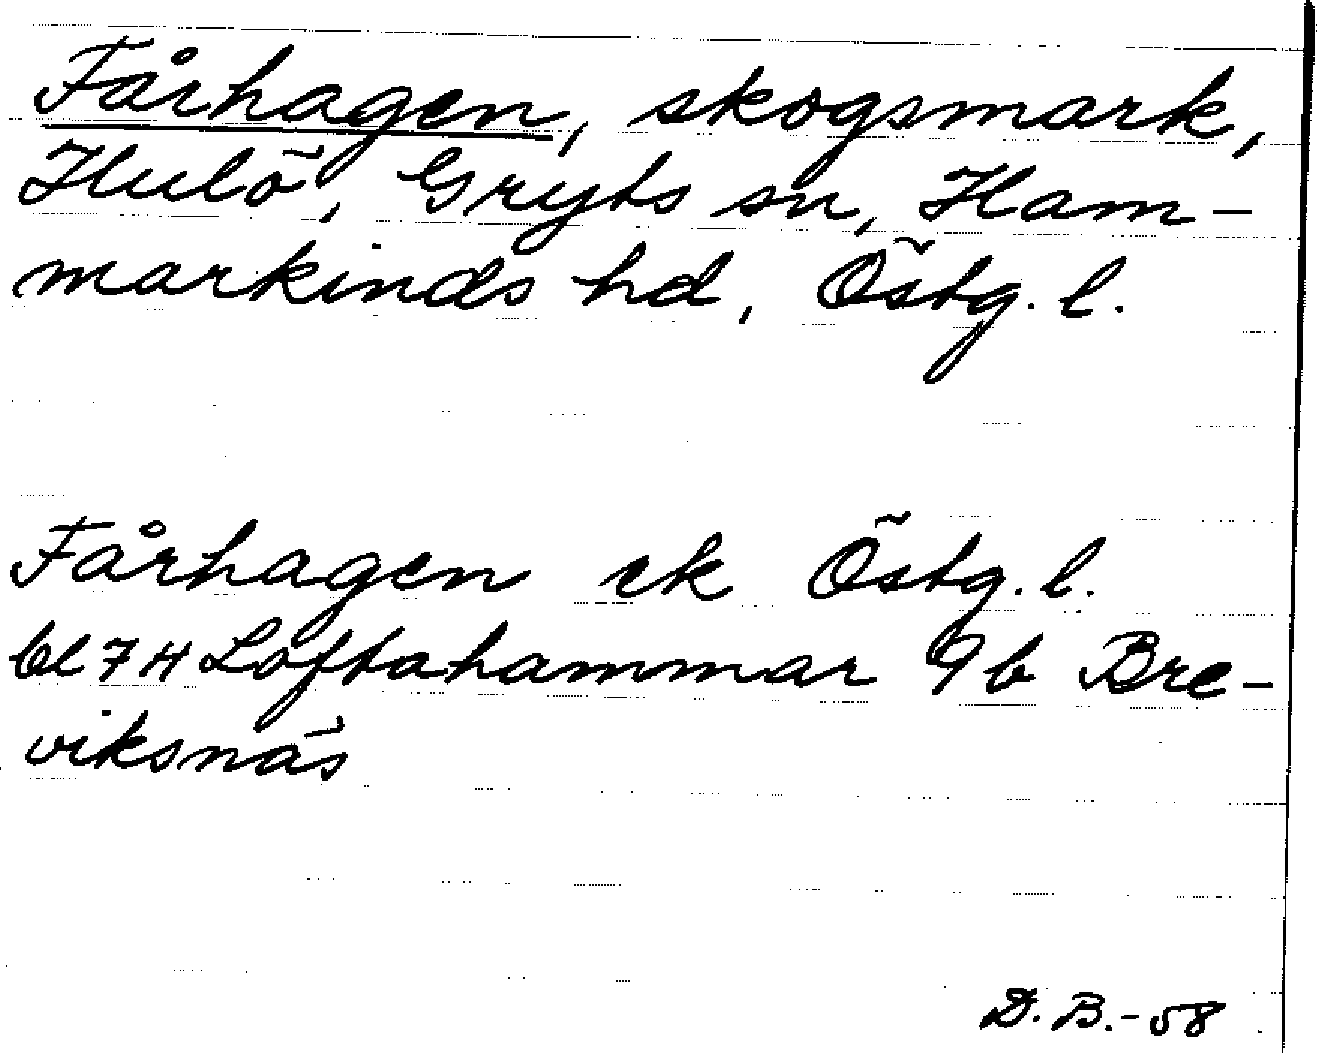 Fårhagen, skogsmark,
Hulö, Gryts sn, Ham-
markinds hd, Östg. l.
Fårhagen ek Östg. l.
bl 7H Loftahammar 9b Bre-
viksnäs
D. B. - 58